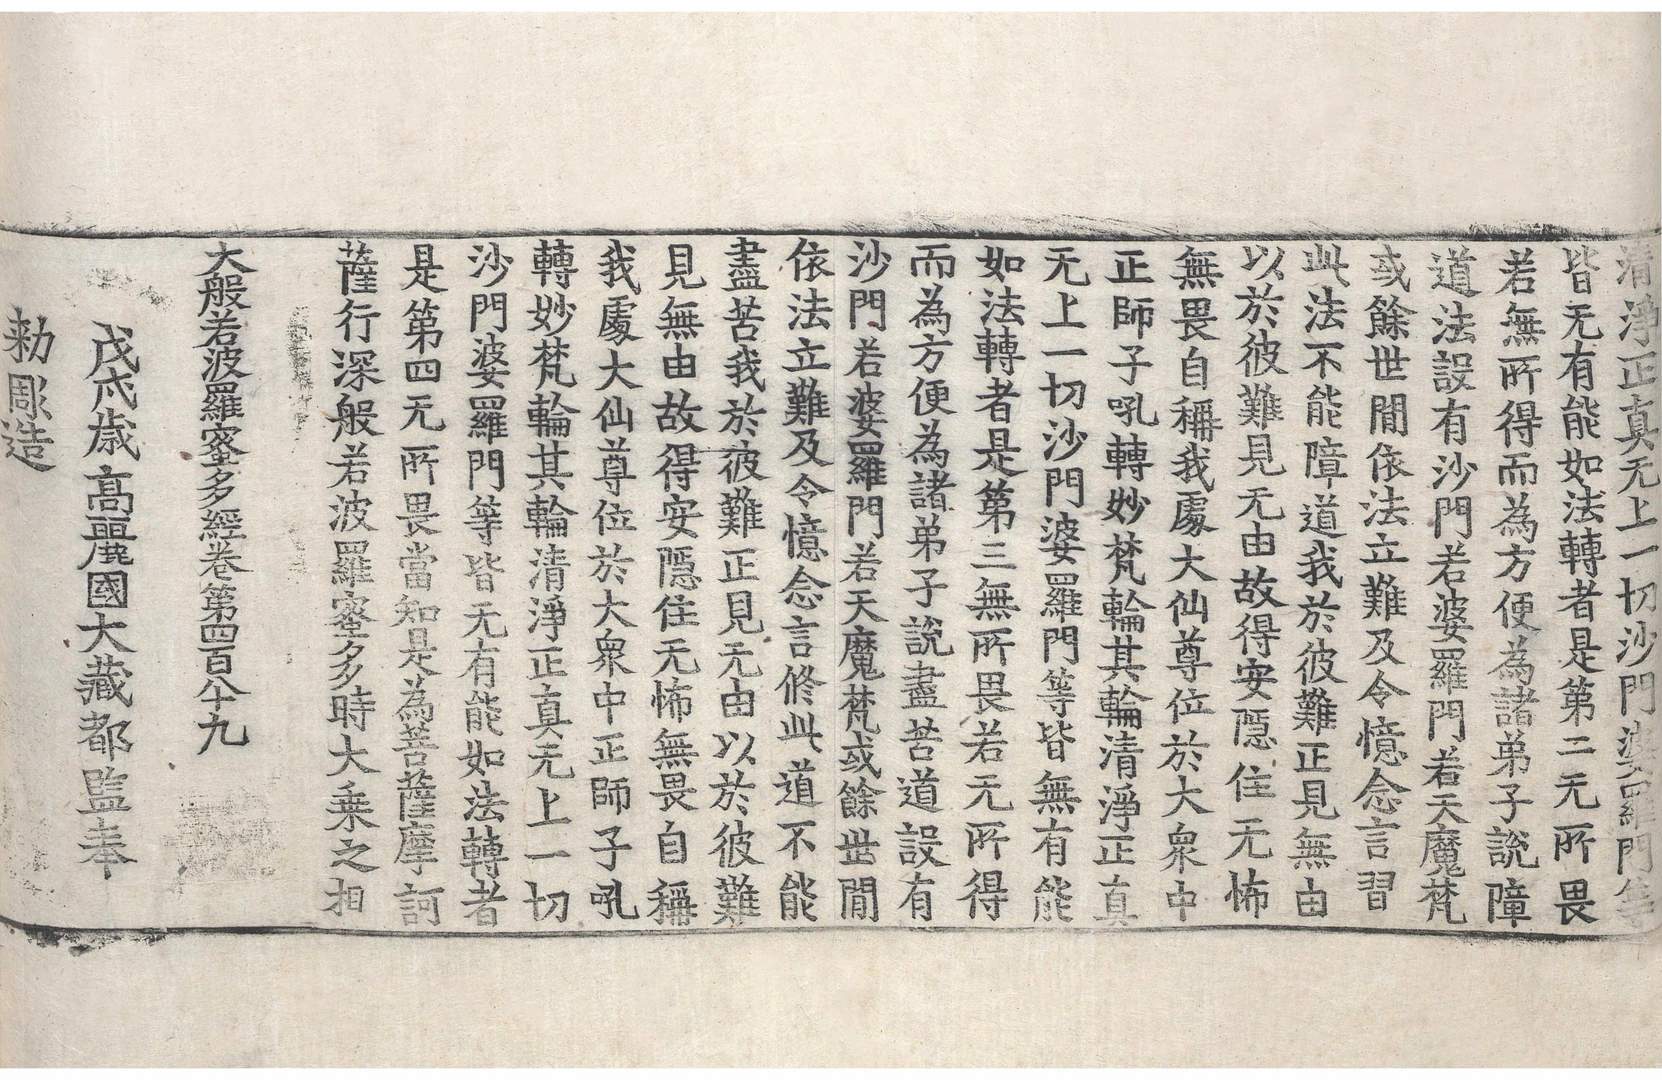 清淨正真无上一切沙門婆羅門等
皆无有能如法轉者是第二无所畏
若無所得而為方便為諸弟子說障
道法設有沙門若婆羅門若天魔梵
或餘世閒依法立難及令憶念言習
此法不能障道我於彼難正見無由
以於彼難見无由故得安隱住无怖
無畏自稱我處大仙尊位於大衆中
正師子吼轉妙梵輪其輪清淨正真
无上一切沙門婆羅門等皆無有能
如法轉者是第三無所畏若无所得
而為方便為諸弟子說盡苦道設有
沙門若婆羅門若天魔梵或餘世閒
依法立難及令憶念言修此道不能
盡苦我於彼難正見无由以於彼難
見無由故得安隱住无怖無畏自稱
我處大仙尊位於大衆中正師子吼
轉妙梵輪其輪清淨正真无上一切
沙門婆羅門等皆无有能如法轉者
是第四无所畏當知是為菩薩摩訶
薩行深般若波羅蜜多時大乘之相
大般若波羅蜜多經卷第四百八十九
戊戌歲高麗國大藏都監奉
勑彫造